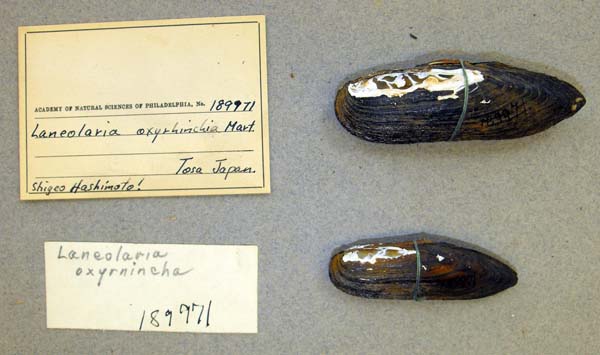 ACADEMY OF NATURAL SCIENCES OF PHILADELPHIA, No. 189971
Laneolaria oxyrhinchia Mart.
Tosa Japan.
Shigeo Hashimoto!
Laneolaria
oxyrnincha
189971
189971